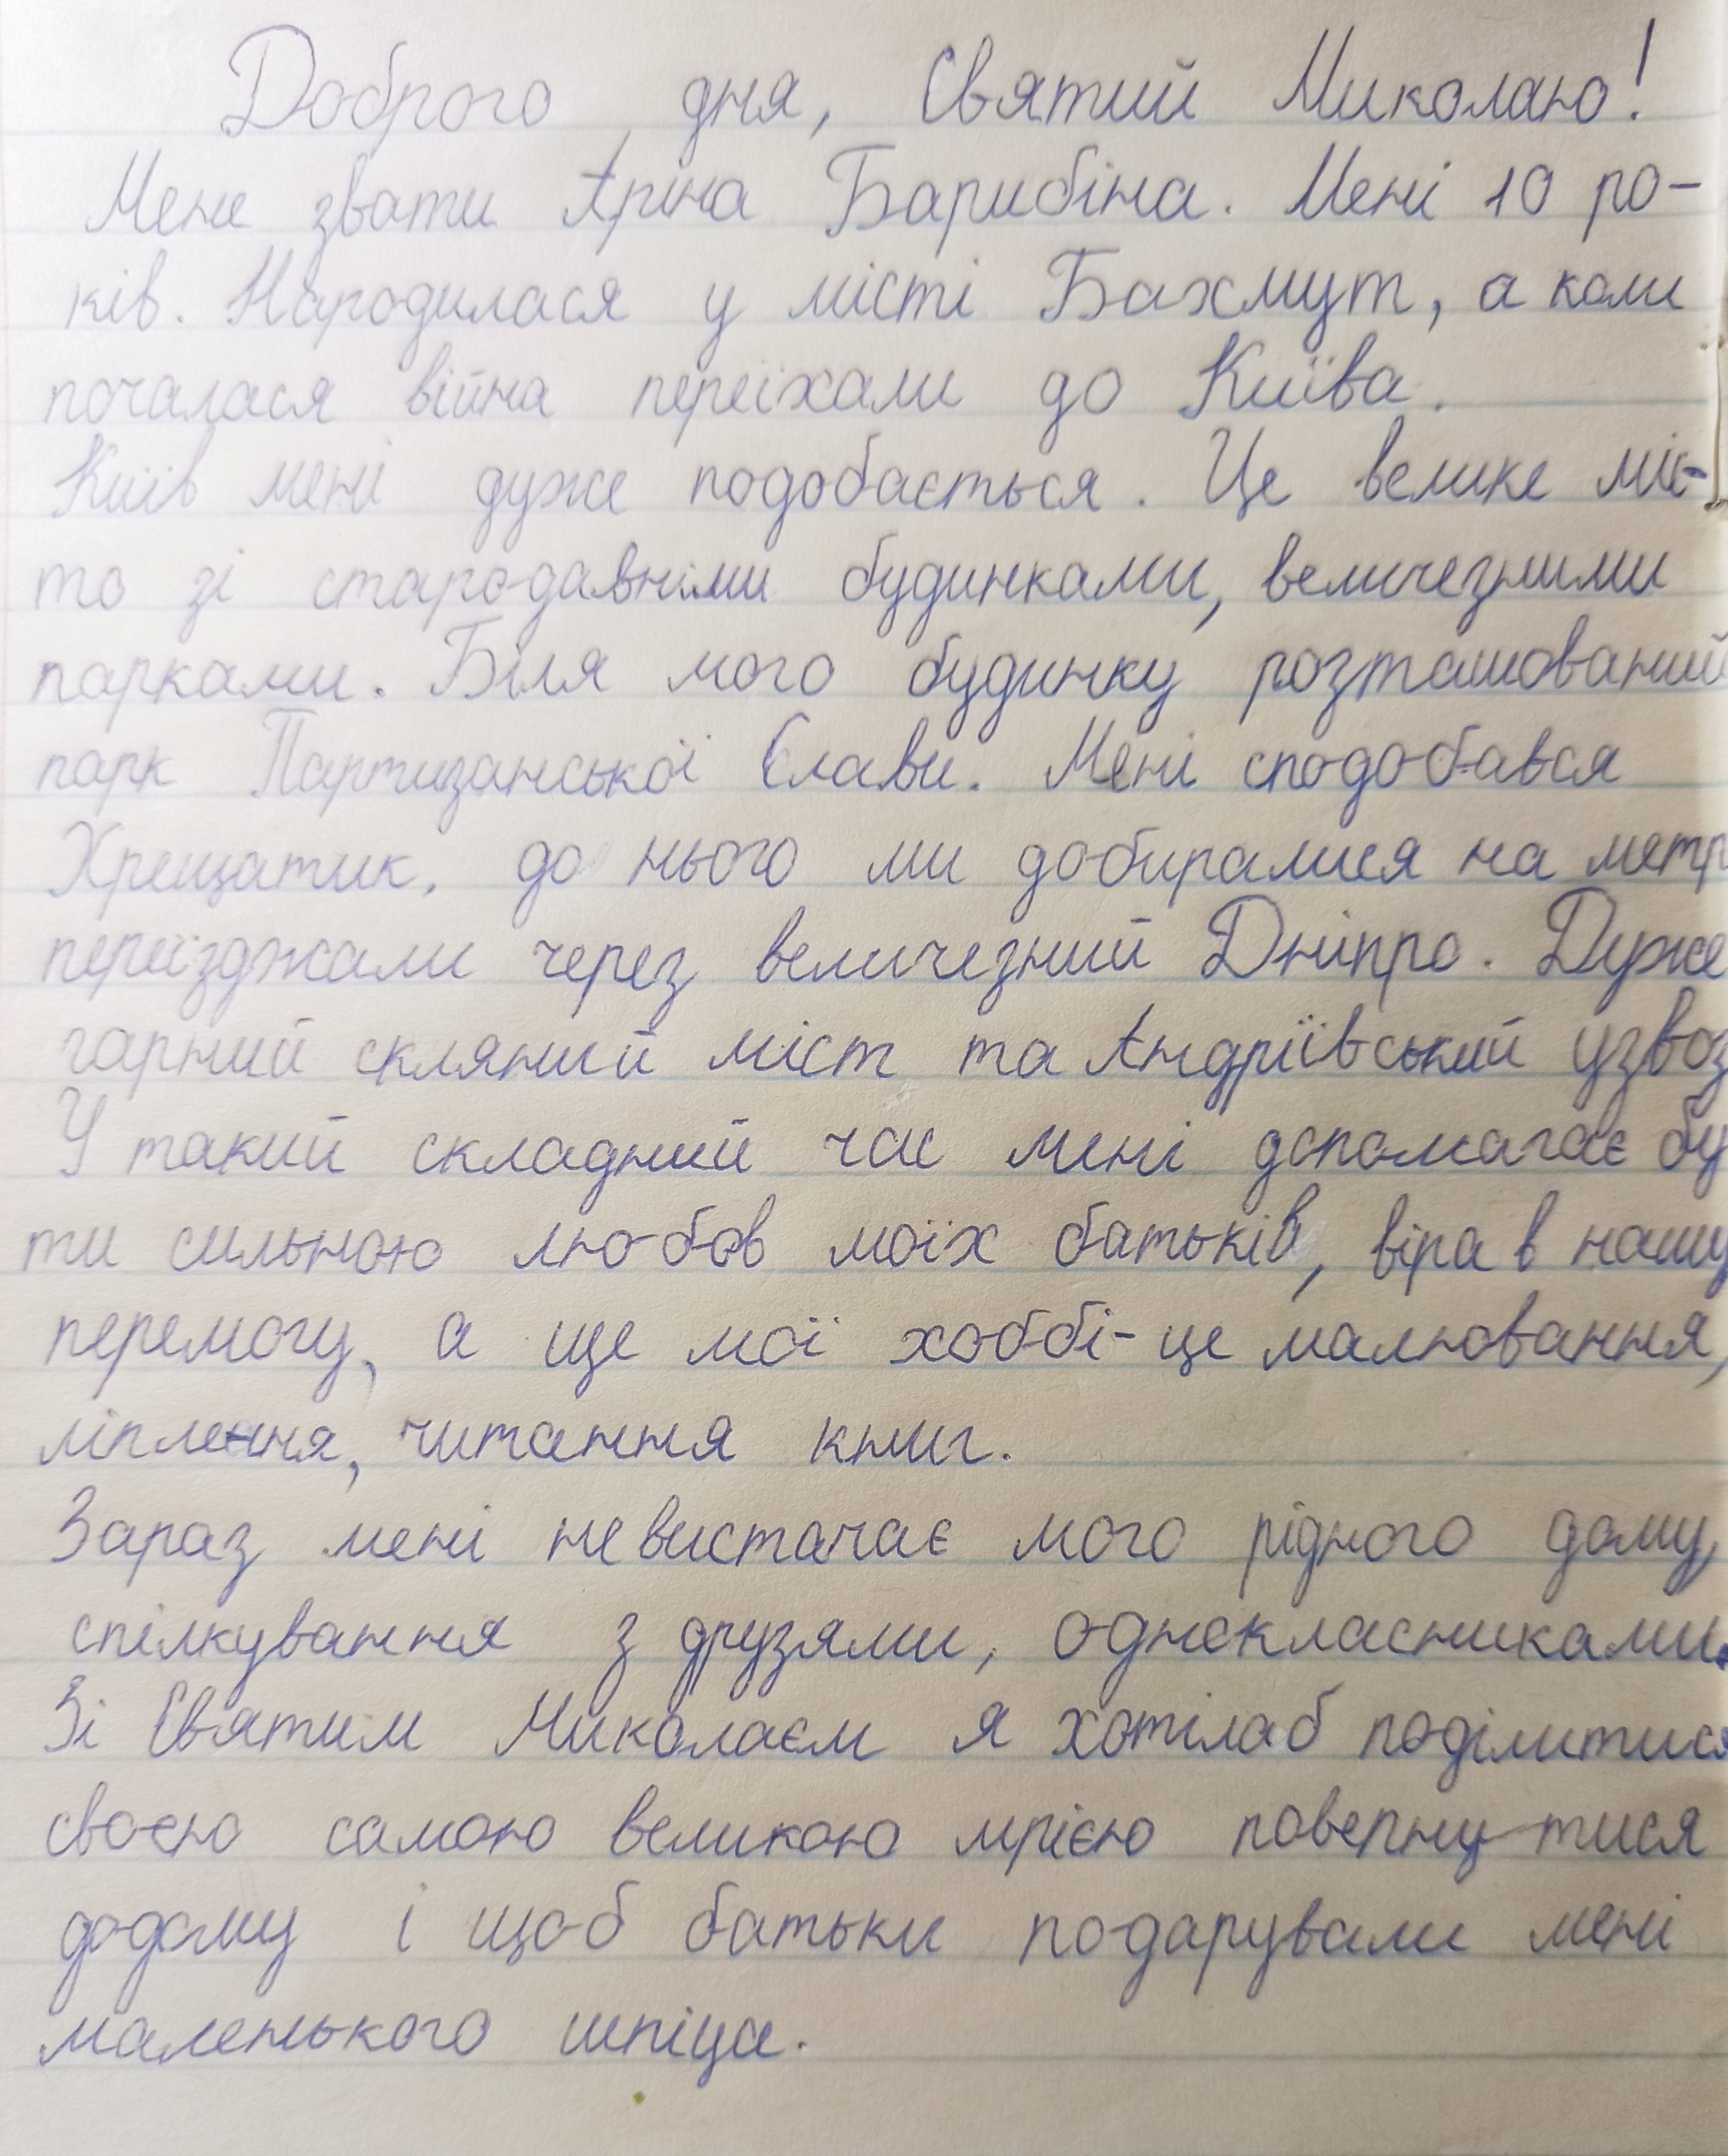 Доброго дня, Святий Миколаю!
Мене звати Аріна Барибіна. Мені 10 ро-
ків. Народилася у місті Бахмут, а коли
почалася війна переїхали до Київа.
Київ мені дуже подобається. Це велике міс-
то зі стародавніми будинками, величезними
парками. Біля мого будинку розташований
парк Партизанської Слави. Мені сподобався
Хрещатик, до нього ми добиралися на метр
переїзджали через величезний Дніпро. Дуже
гарний скляний міст та Андріївський узвоз
У такий складний час мені допомагає бу
ти сильною любов моїх батьків, віра в нашу
перемогу, а ще мої хоббі - це малювання,
ліплення, читання книг.
Зараз мені невистачає мого рідного дому,
спілкування з друзями, однокласниками.
Зі Святим Миколаєм я хотілаб поділитися
своєю самою великою мрією повернутися
додому і щоб батьки подарували мені
маленького шпіца.